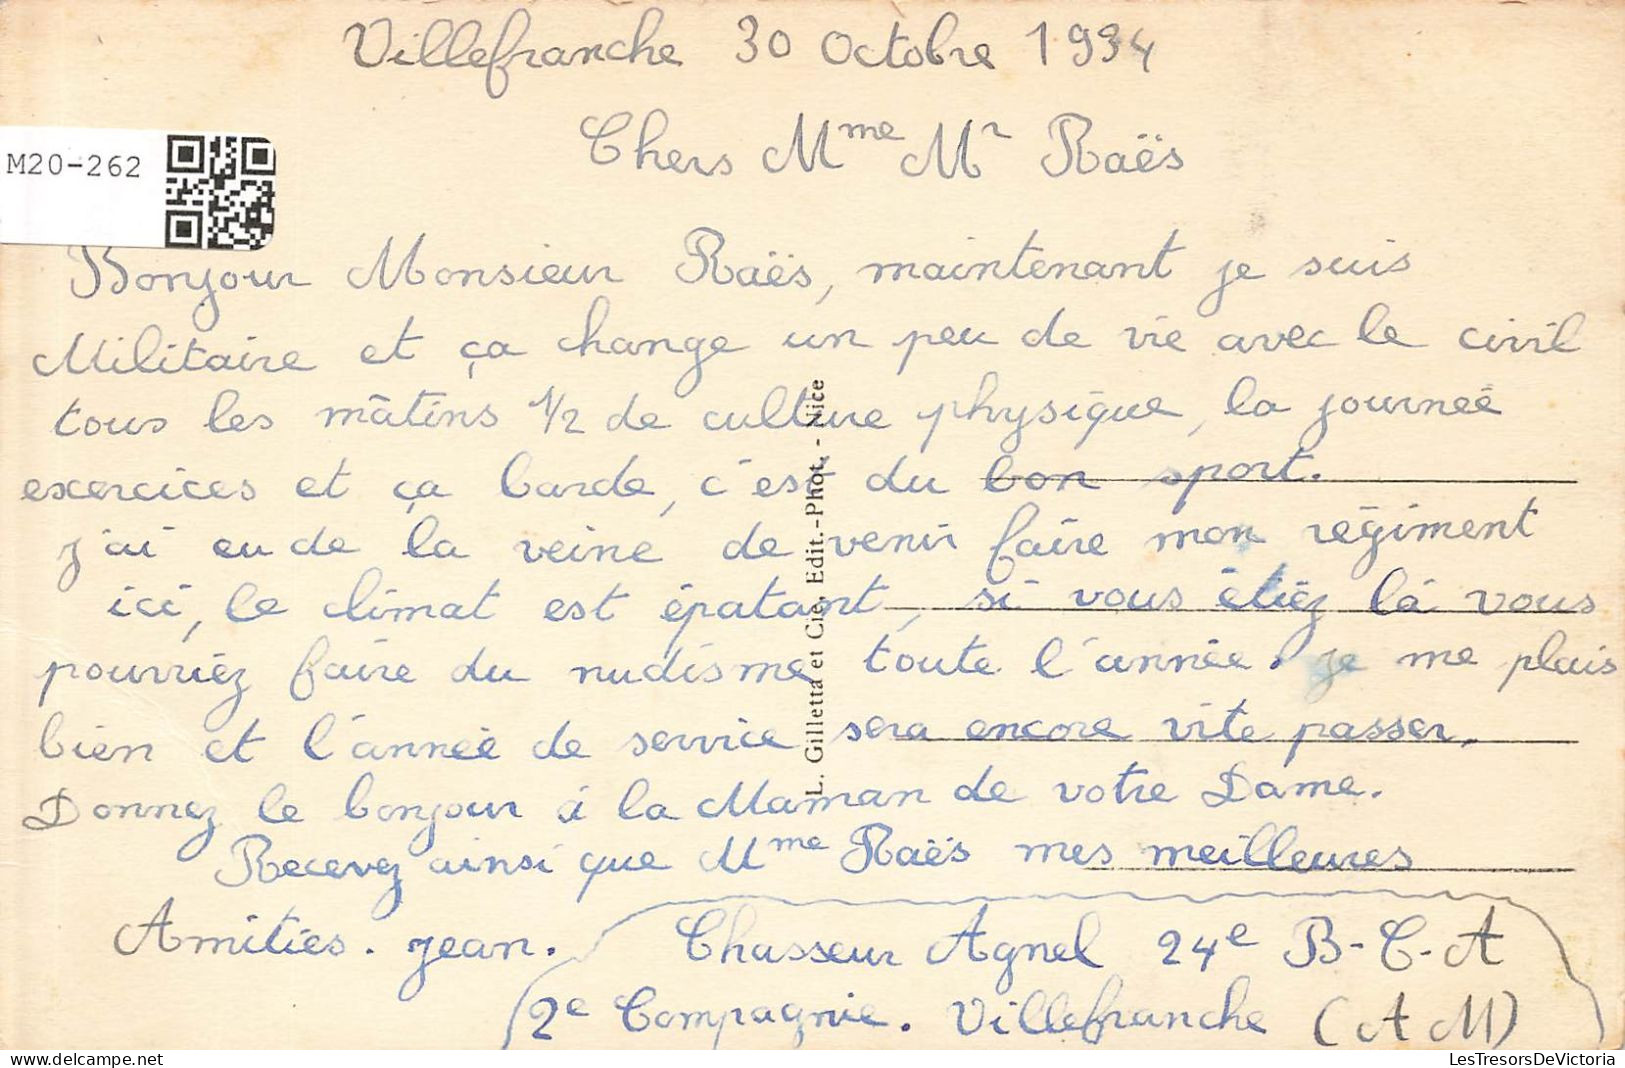 Villefranche 30 Octobre 1934
Chers Mme Mr Raës
M20-262
Bonjour Monsieur Raës, maintenant je suis
Militaire et ça change un peu de vie avec le civil
tous les mâtins 1/2 de culture physique, la journeé
exercices et ça barde, c'est du bon sport.
j'ai eu de la veine de venir faire mon régiment
ici, le climat est épatant, si vous étiéz là vous
pourriéz faire du nudisme toute l'année. je me plais
bien et l'anneé de service sera encore vite passer.
Donnez le bonjour à la Maman de votre Dame.
Recevez ainsi que Mme Raës mes meilleures
Amitiés. Jean.
Chasseur Agnel 24e B-C-A
2e Compagnie. Villefranche (AM)
L. Gilletta et Cie, Edit.-Phot. - Nice
LesTresorsDeVictoria